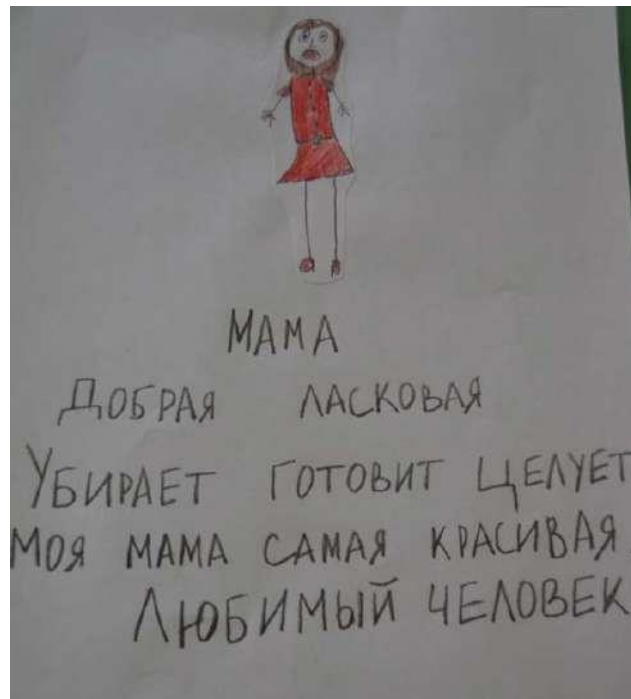 МАМА
ДОБРАЯ ЛАСКОВАЯ
УБИРАЕТ ГОТОВИТ ЦЕЛУЕТ
МОЯ МАМА САМАЯ КРАСИВАЯ
ЛЮБИМЫЙ ЧЕЛОВЕК